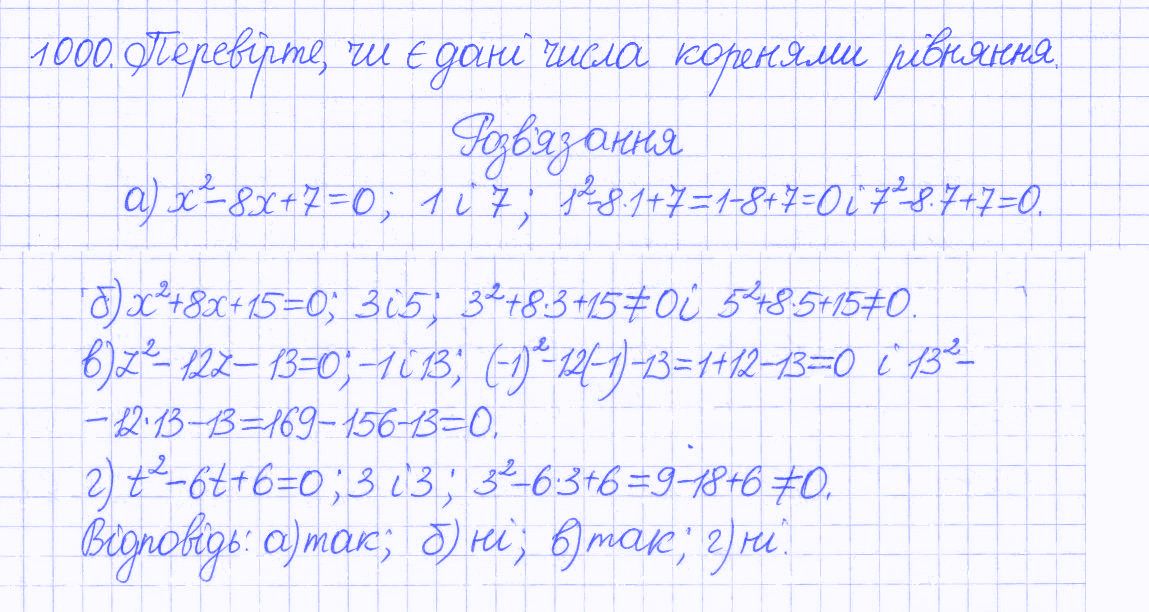 1000. Перевірте, чи є дані числа коренями рівняння.
Розв'язання
а) x²-8x+7=0; 1 і 7; 1²-8·1+7=1-8+7=0 і 7²-8·7+7=0.
б) x²+8x+15=0; 3 і 5; 3²+8·3+15≠0 і 5²+8·5+15≠0.
в) z²-12z-13=0; -1 і 13; (-1)²-12(-1)-13=1+12-13=0 і 13²-
-12·13-13=169-156-13=0.
г) t²-6t+6=0; 3 і 3; 3²-6·3+6=9-18+6≠0.
Відповідь: а) так; б) ні; в) так; г) ні.